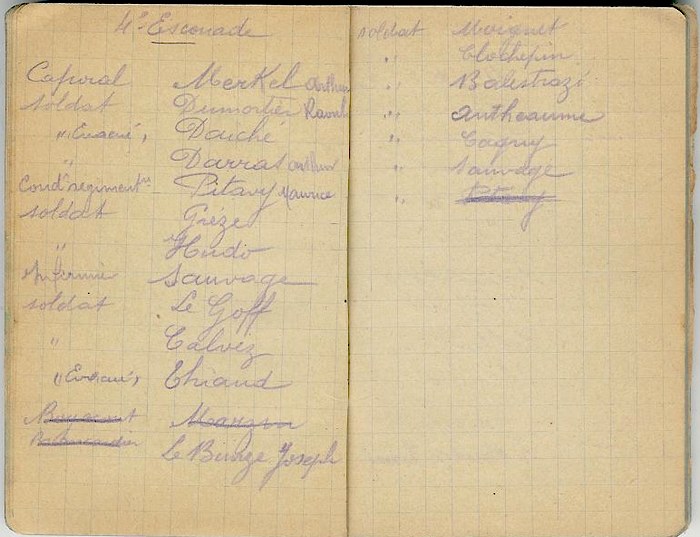 4e Escouade
Caporal Merkel Arthur
soldat Dumortier Raoul
" (Evacué) Douché
" Darras Arthur
Cord. régimentre Pitavy Maurice
soldat Grèze
" Hudo
Infirmier Sauvage
soldat Le Goff
" Calvez
" (Evacué) Thiaud
Le Binge Joseph
soldat Moignet
" Clochepin
" Balestrazi
" Antheaume
" Cagny
" Sauvage
"